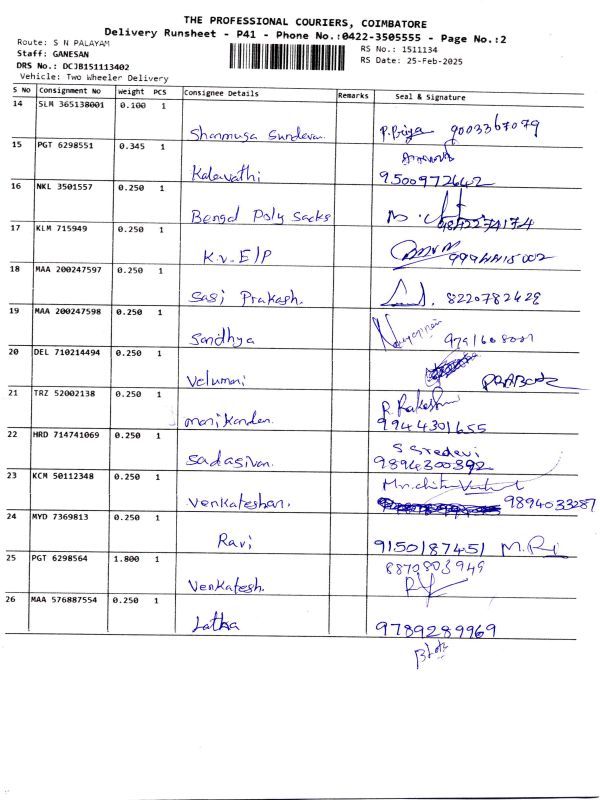 THE PROFESSIONAL COURIERS, COIMBATORE
Delivery Runsheet - P41 - Phone No.:0422-3505555 - Page No.:2
Route: S N PALAYAM
Staff: GANESAN
DRS No.: DCJB151113402
Vehicle: Two Wheeler Delivery
RS No.: 1511134
RS Date: 25-Feb-2025
S No Consignment No Weight PCS Consignee Details Remarks Seal & Signature
14 SLM 365138001 0.100 1
Shanmuga Sundevan P. Priya 9003367079
15 PGT 6298551 0.345 1
Kalavathi 9500972642
16 NKL 3501557 0.250 1
Bengal Poly Sacks 9842274174
17 KLM 715949 0.250 1
K.V. E/P
18 MAA 200247597 0.250 1
Sasi Prakash. 8220782428
19 MAA 200247598 0.250 1
Sandhya
20 DEL 710214494 0.250 1
Velumani
21 TRZ 52002138 0.250 1
R. Rakesh
manikandan. 9944301655
22 HRD 714741069 0.250 1
S Sredevi
Sadasivan. 9894300392
23 KCM 50112348 0.250 1
Venkateshan. 9894033287
24 MYD 7369813 0.250 1
Ravi 9150187451 M.Ri
25 PGT 6298564 1.800 1
8870803949
Venkatesh.
26 MAA 576887554 0.250 1
Latha 9789289969